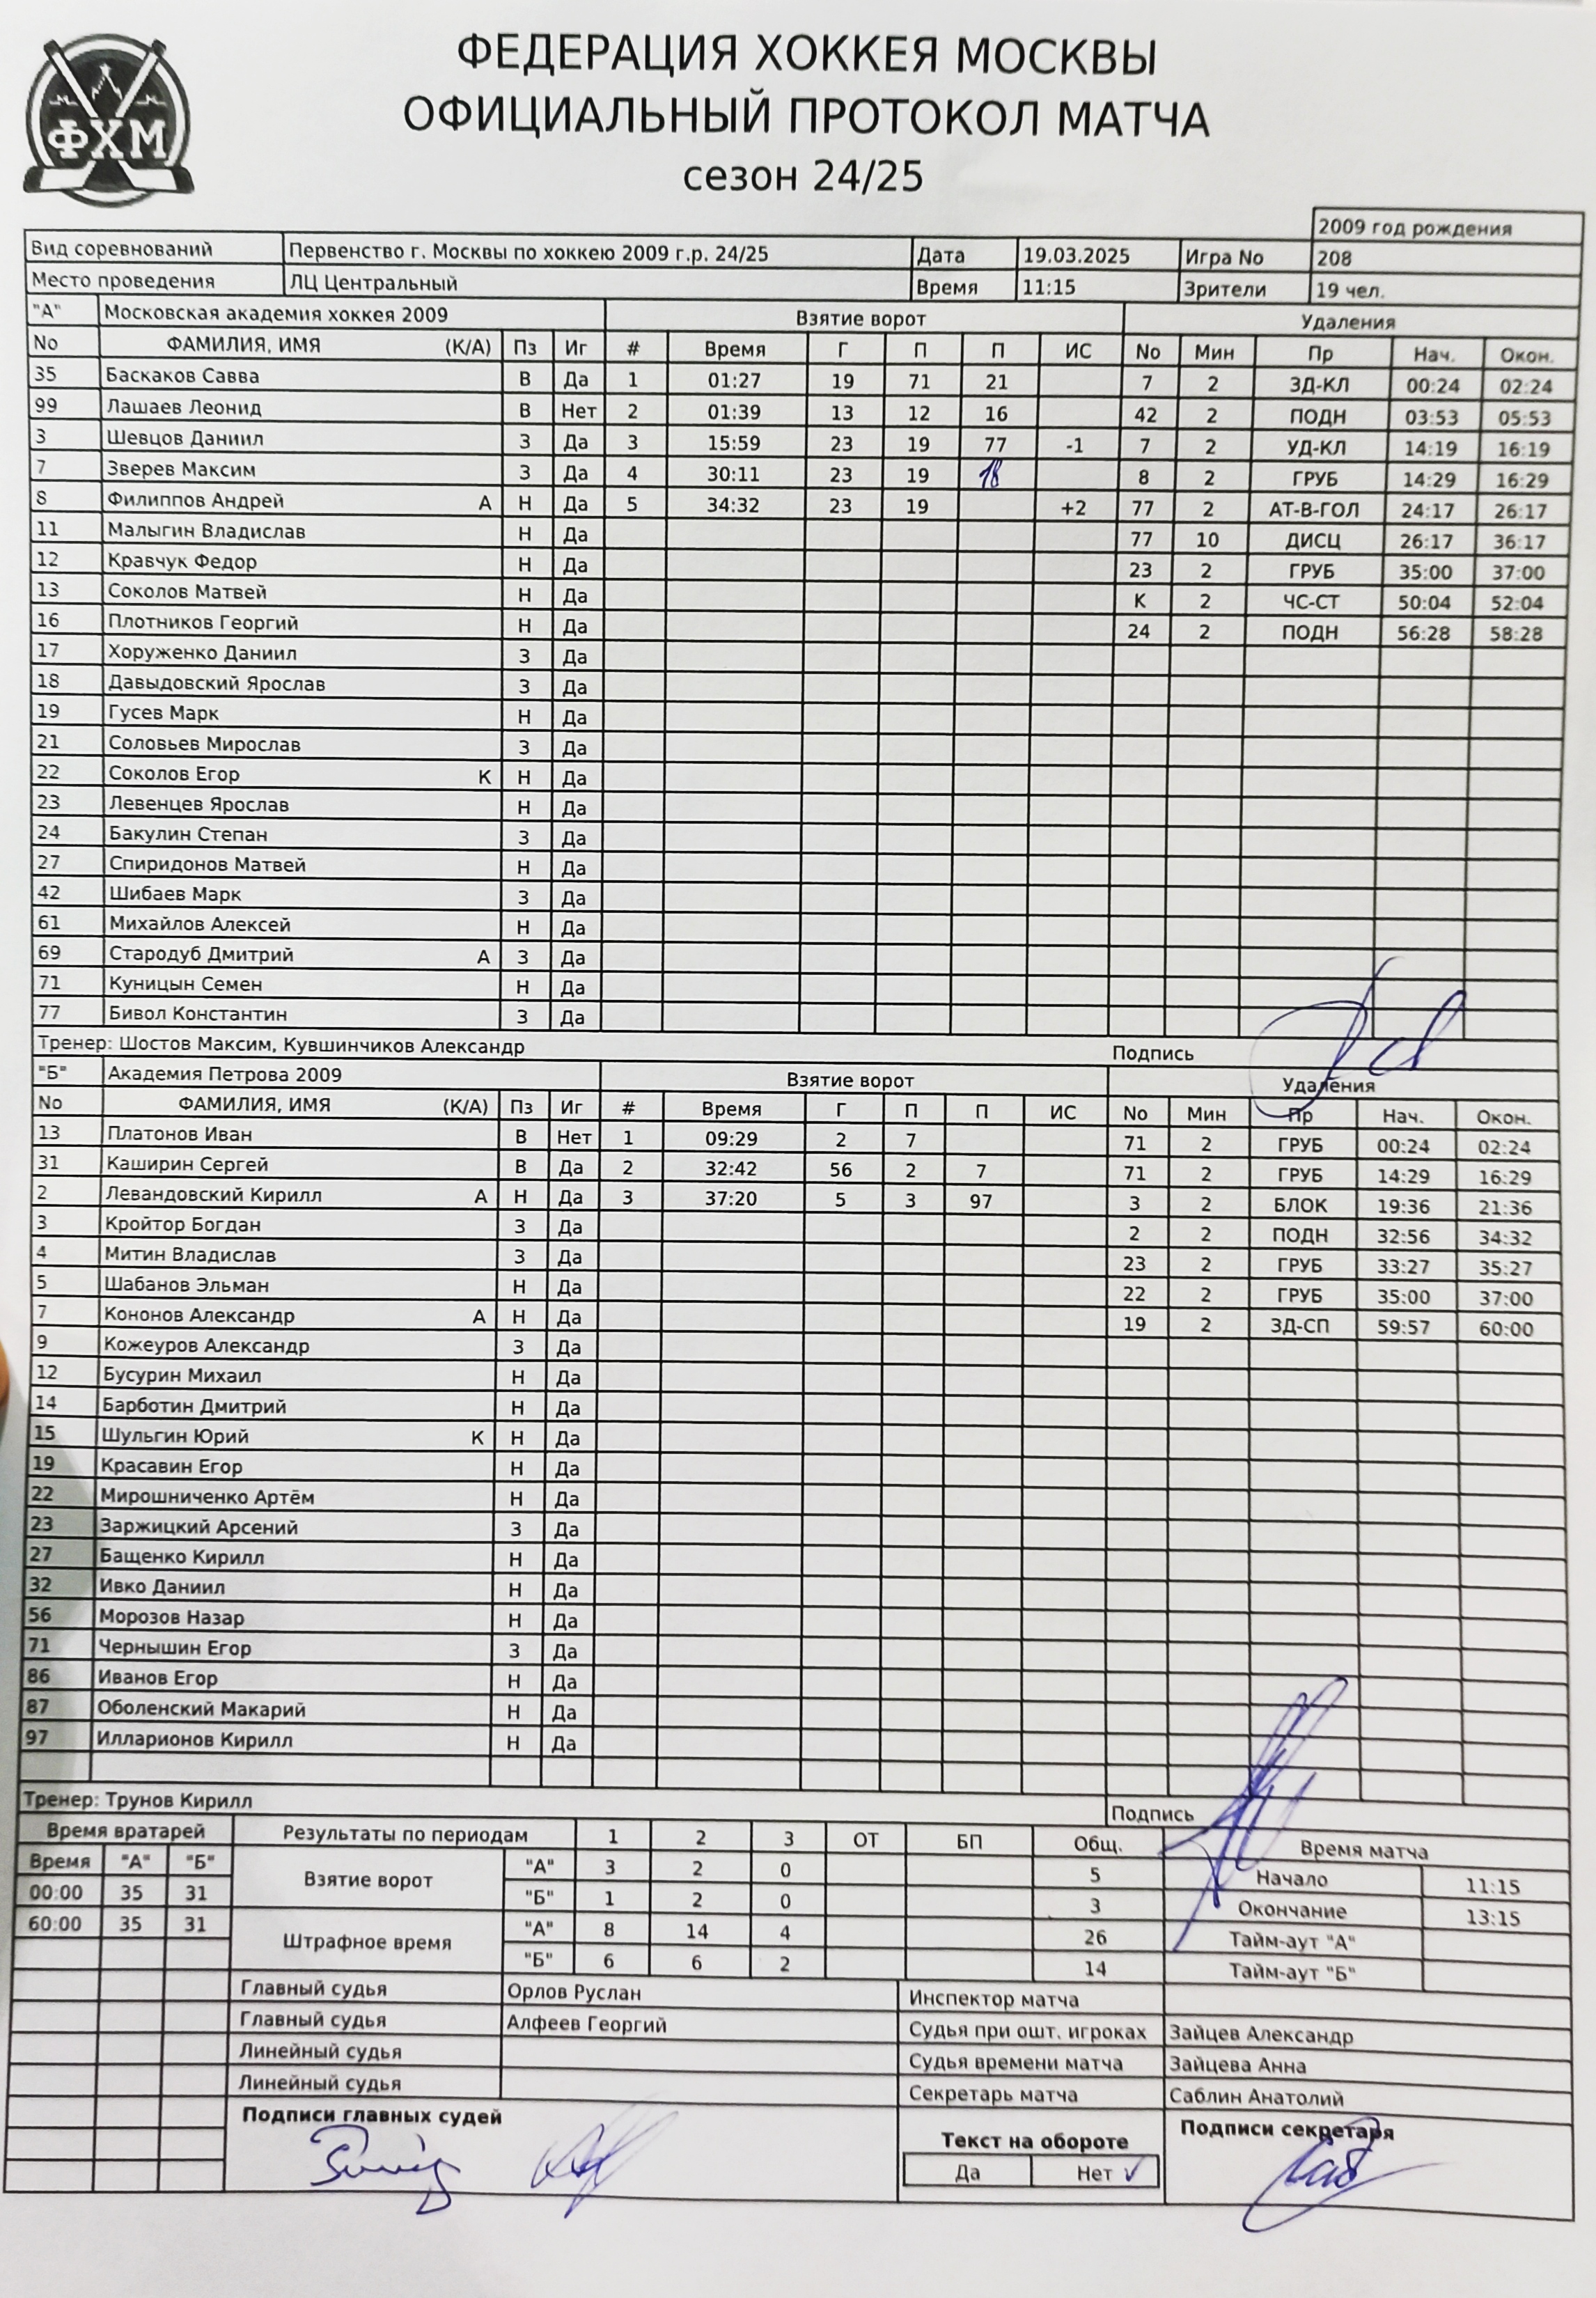 ФХМ
ФЕДЕРАЦИЯ ХОККЕЯ МОСКВЫ
ОФИЦИАЛЬНЫЙ ПРОТОКОЛ МАТЧА
сезон 24/25
2009 год рождения
Вид соревнований Первенство г. Москвы по хоккею 2009 г.р. 24/25 Дата 19.03.2025 Игра No 208
Место проведения ЛЦ Центральный Время 11:15 Зрители 19 чел.
"А" Московская академия хоккея 2009 Взятие ворот Удаления
No ФАМИЛИЯ, ИМЯ (К/А) Пз Иг # Время Г П П ИС No Мин Пр Нач. Окон.
35 Баскаков Савва В Да 1 01:27 19 71 21 7 2 ЗД-КЛ 00:24 02:24
99 Лашаев Леонид В Нет 2 01:39 13 12 16 42 2 ПОДН 03:53 05:53
3 Шевцов Даниил З Да 3 15:59 23 19 77 -1 7 2 УД-КЛ 14:19 16:19
7 Зверев Максим З Да 4 30:11 23 19 18 8 2 ГРУБ 14:29 16:29
8 Филиппов Андрей А Н Да 5 34:32 23 19 +2 77 2 АТ-В-ГОЛ 24:17 26:17
11 Малыгин Владислав Н Да 77 10 ДИСЦ 26:17 36:17
12 Кравчук Федор Н Да 23 2 ГРУБ 35:00 37:00
13 Соколов Матвей Н Да К 2 ЧС-СТ 50:04 52:04
16 Плотников Георгий Н Да 24 2 ПОДН 56:28 58:28
17 Хоруженко Даниил З Да
18 Давыдовский Ярослав З Да
19 Гусев Марк Н Да
21 Соловьев Мирослав З Да
22 Соколов Егор К Н Да
23 Левенцев Ярослав Н Да
24 Бакулин Степан З Да
27 Спиридонов Матвей Н Да
42 Шибаев Марк З Да
61 Михайлов Алексей Н Да
69 Стародуб Дмитрий А З Да
71 Куницын Семен Н Да
77 Бивол Константин З Да
Тренер: Шостов Максим, Кувшинчиков Александр Подпись
"Б" Академия Петрова 2009 Взятие ворот Удаления
No ФАМИЛИЯ, ИМЯ (К/А) Пз Иг # Время Г П П ИС No Мин Пр Нач. Окон.
13 Платонов Иван В Нет 1 09:29 2 7 71 2 ГРУБ 00:24 02:24
31 Каширин Сергей В Да 2 32:42 56 2 7 71 2 ГРУБ 14:29 16:29
2 Левандовский Кирилл А Н Да 3 37:20 5 3 97 3 2 БЛОК 19:36 21:36
3 Кройтор Богдан З Да 2 2 ПОДН 32:56 34:32
4 Митин Владислав З Да 23 2 ГРУБ 33:27 35:27
5 Шабанов Эльман Н Да 22 2 ГРУБ 35:00 37:00
7 Кононов Александр А Н Да 19 2 ЗД-СП 59:57 60:00
9 Кожеуров Александр З Да
12 Бусурин Михаил Н Да
14 Барботин Дмитрий Н Да
15 Шульгин Юрий К Н Да
19 Красавин Егор Н Да
22 Мирошниченко Артём Н Да
23 Заржицкий Арсений З Да
27 Бащенко Кирилл Н Да
32 Ивко Даниил Н Да
56 Морозов Назар Н Да
71 Чернышин Егор З Да
86 Иванов Егор Н Да
87 Оболенский Макарий Н Да
97 Илларионов Кирилл Н Да
Тренер: Трунов Кирилл Подпись
Время вратарей Результаты по периодам 1 2 3 ОТ БП Общ. Время матча
Время "А" "Б" Взятие ворот "А" 3 2 0 5 Начало 11:15
00:00 35 31 "Б" 1 2 0 3 Окончание 13:15
60:00 35 31 Штрафное время "А" 8 14 4 26 Тайм-аут "А"
"Б" 6 6 2 14 Тайм-аут "Б"
Главный судья Орлов Руслан Инспектор матча
Главный судья Алфеев Георгий Судья при ошт. игроках Зайцев Александр
Линейный судья Судья времени матча Зайцева Анна
Линейный судья Секретарь матча Саблин Анатолий
Подписи главных судей Текст на обороте Подписи секретаря
Да Нет